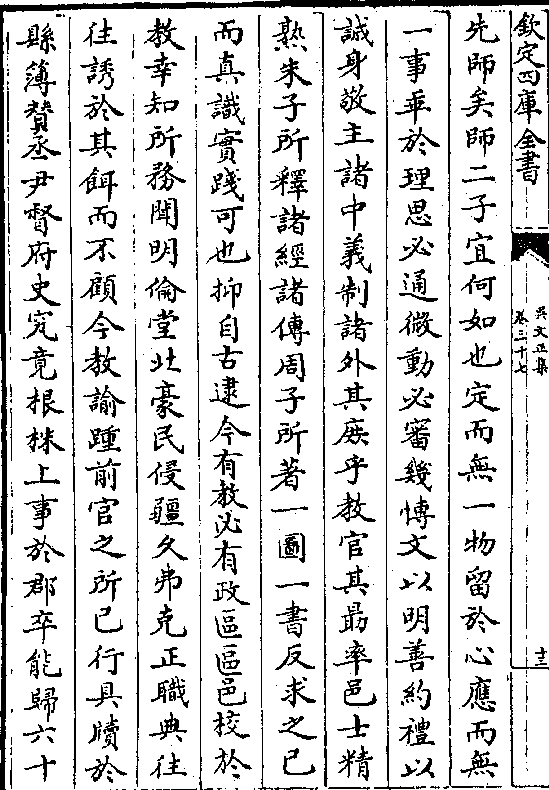 欽定四庫全書
吳文正集
卷三十七
十三
先師矣師二子宜何如也定而無一物留於心應而無
一事乖於理思必通微動必審幾愽文以明善約禮以
誠身敬主諸中義制諸外其庶乎教官其勗率邑士精
熟朱子所釋諸經諸傳周子所著一圖一書反求之已
而真識實踐可也抑自古逮今有教必有政區區邑校於
教幸知所務聞明倫堂北豪民侵疆久弗克正職典往
往誘於其餌而不顧今教諭踵前官之所已行具牘於
縣簿贊丞尹督府史究竟根株上事於郡卒能歸六十